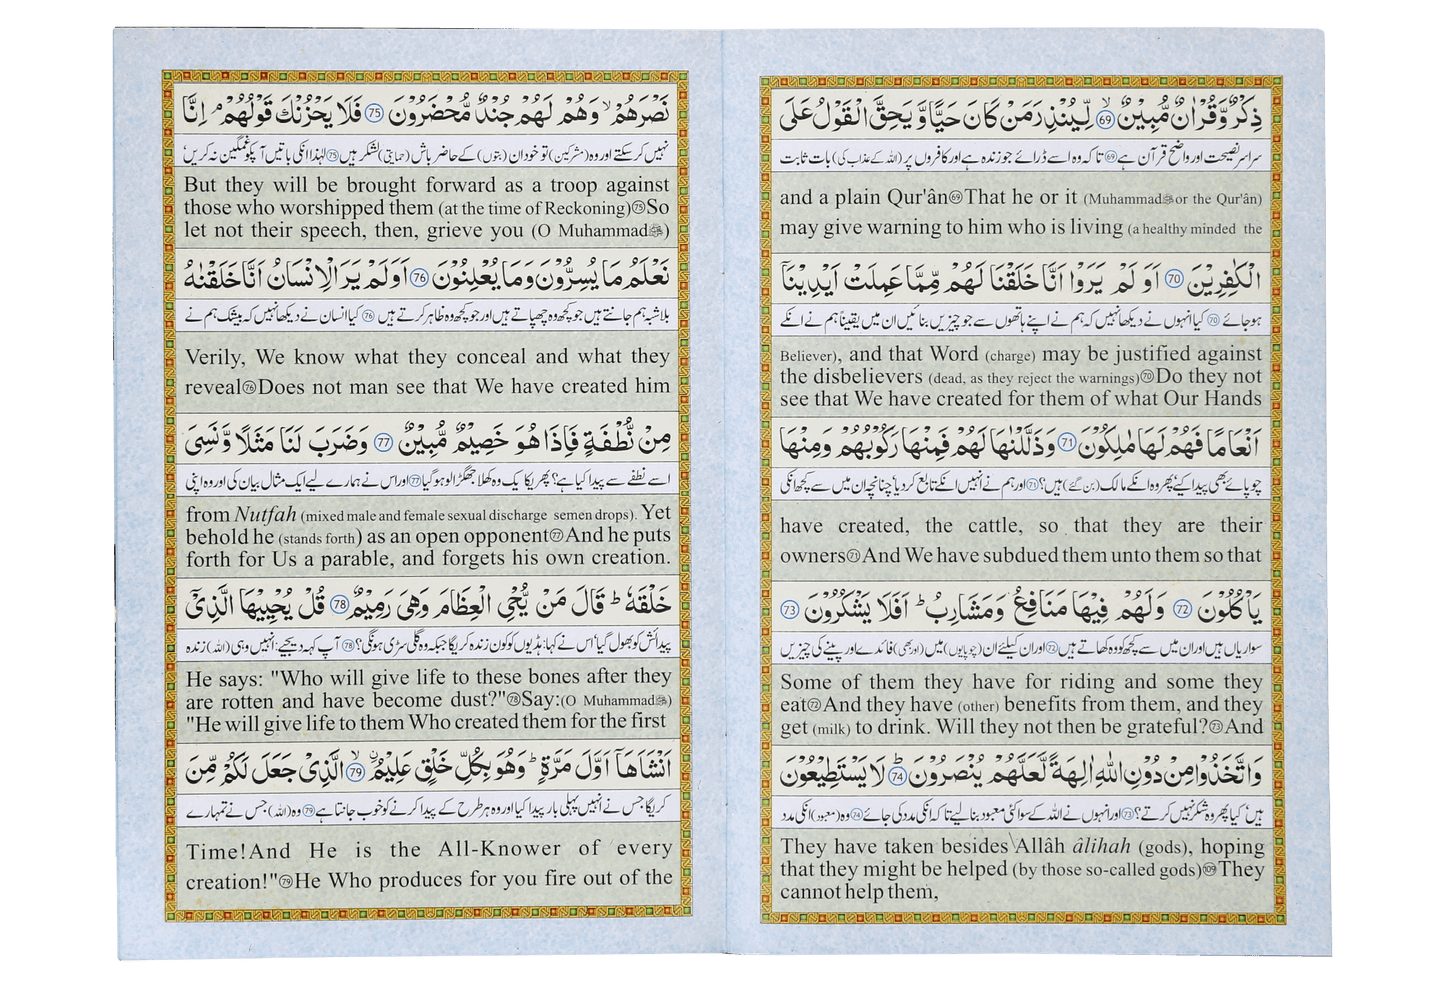 ذِكْرٌ وَّقُرْاٰنٌ مُّبِيْنٌ ۙ 69 لِّيُنْذِرَ مَنْ كَانَ حَيًّا وَّيَحِقَّ الْقَوْلُ عَلَى
سراسر نصیحت اور واضح قرآن ہے 69 تاکہ وہ اسے ڈرائے جو زندہ ہے اور کافروں پر (اللہ کے عذاب کی) بات ثابت
and a plain Qur'ân 69 That he or it (Muhammad ﷺ or the Qur'ân)
may give warning to him who is living (a healthy minded the
الْكٰفِرِيْنَ 70 اَوَ لَمْ يَرَوْا اَنَّا خَلَقْنَا لَهُمْ مِّمَّا عَمِلَتْ اَيْدِيْنَآ
ہو جائے 70 کیا انہوں نے دیکھا نہیں کہ ہم نے اپنے ہاتھوں سے جو چیزیں بنائیں ان میں یقیناً ہم نے انکے
Believer), and that Word (charge) may be justified against
the disbelievers (dead, as they reject the warnings) 70 Do they not
see that We have created for them of what Our Hands
اَنْعَامًا فَهُمْ لَهَا مٰلِكُوْنَ 71 وَذَلَّلْنٰهَا لَهُمْ فَمِنْهَا رَكُوْبُهُمْ وَمِنْهَا
چوپائے بھی پیدا کیے، پھر وہ انکے مالک (بن گئے) ہیں؟ 71 اور ہم نے انہیں انکے تابع کر دیا، چنانچہ ان میں سے کچھ انکی
have created, the cattle, so that they are their
owners 71 And We have subdued them unto them so that
يَاْكُلُوْنَ 72 وَلَهُمْ فِيْهَا مَنَافِعُ وَمَشَارِبُ ؕ اَفَلَا يَشْكُرُوْنَ 73
سواریاں ہیں اور ان میں سے کچھ کو وہ کھاتے ہیں 72 اور ان کیلئے ان (چوپایوں) میں (اور بھی) فائدے اور پینے کی چیزیں
Some of them they have for riding and some they
eat 72 And they have (other) benefits from them, and they
get (milk) to drink. Will they not then be grateful? 73 And
وَاتَّخَذُوْا مِنْ دُوْنِ اللّٰهِ اٰلِهَةً لَّعَلَّهُمْ يُنْصَرُوْنَ ؕ 74 لَا يَسْتَطِيْعُوْنَ
ہیں، کیا پھر وہ شکر نہیں کرتے؟ 73 اور انہوں نے اللہ کے سوا کئی معبود بنا لیے تاکہ انکی مدد کی جائے 74 وہ (معبود) انکی مدد
They have taken besides Allâh âlihah (gods), hoping
that they might be helped (by those so-called gods) 109 They
cannot help them,
نَصْرَهُمْ ۙ وَهُمْ لَهُمْ جُنْدٌ مُّحْضَرُوْنَ 75 فَلَا يَحْزُنْكَ قَوْلُهُمْ ۘ اِنَّا
نہیں کر سکتے اور وہ (مشرکین) تو خود ان (بتوں) کے حاضر باش (حمایتی) لشکر ہیں 75 لہٰذا انکی باتیں آپکو غمگین نہ کریں،
But they will be brought forward as a troop against
those who worshipped them (at the time of Reckoning) 75 So
let not their speech, then, grieve you (O Muhammad ﷺ)
نَعْلَمُ مَا يُسِرُّوْنَ وَمَا يُعْلِنُوْنَ 76 اَوَلَمْ يَرَ الْاِنْسَانُ اَنَّا خَلَقْنٰهُ
بلاشبہ ہم جانتے ہیں جو کچھ وہ چھپاتے ہیں اور جو کچھ وہ ظاہر کرتے ہیں 76 کیا انسان نے دیکھا نہیں کہ بیشک ہم نے
Verily, We know what they conceal and what they
reveal 76 Does not man see that We have created him
مِنْ نُّطْفَةٍ فَاِذَا هُوَ خَصِيْمٌ مُّبِيْنٌ 77 وَضَرَبَ لَنَا مَثَلًا وَّنَسِيَ
اسے نطفے سے پیدا کیا ہے؟ پھر یکایک وہ کھلا جھگڑالو ہو گیا 77 اور اس نے ہمارے لیے ایک مثال بیان کی اور وہ اپنی
from Nutfah (mixed male and female sexual discharge semen drops). Yet
behold he (stands forth) as an open opponent 77 And he puts
forth for Us a parable, and forgets his own creation.
خَلْقَهٗ ؕ قَالَ مَنْ يُّحْيِ الْعِظَامَ وَهِيَ رَمِيْمٌ 78 قُلْ يُحْيِيْهَا الَّذِيْٓ
پیدائش کو بھول گیا، اس نے کہا: ہڈیوں کو کون زندہ کریگا جبکہ وہ گلی سڑی ہونگی؟ 78 آپ کہہ دیجیے: انہیں وہی (اللہ) زندہ
He says: "Who will give life to these bones after they
are rotten and have become dust?" 78 Say:(O Muhammad ﷺ)
"He will give life to them Who created them for the first
اَنْشَاَهَآ اَوَّلَ مَرَّةٍ ؕ وَهُوَ بِكُلِّ خَلْقٍ عَلِيْمُ ۙ 79 الَّذِيْ جَعَلَ لَكُمْ مِّنَ
کریگا جس نے انہیں پہلی بار پیدا کیا اور وہ ہر طرح کے پیدا کرنے کو خوب جانتا ہے 79 وہ (اللہ) جس نے تمہارے
Time!And He is the All-Knower of every
creation!" 79 He Who produces for you fire out of the